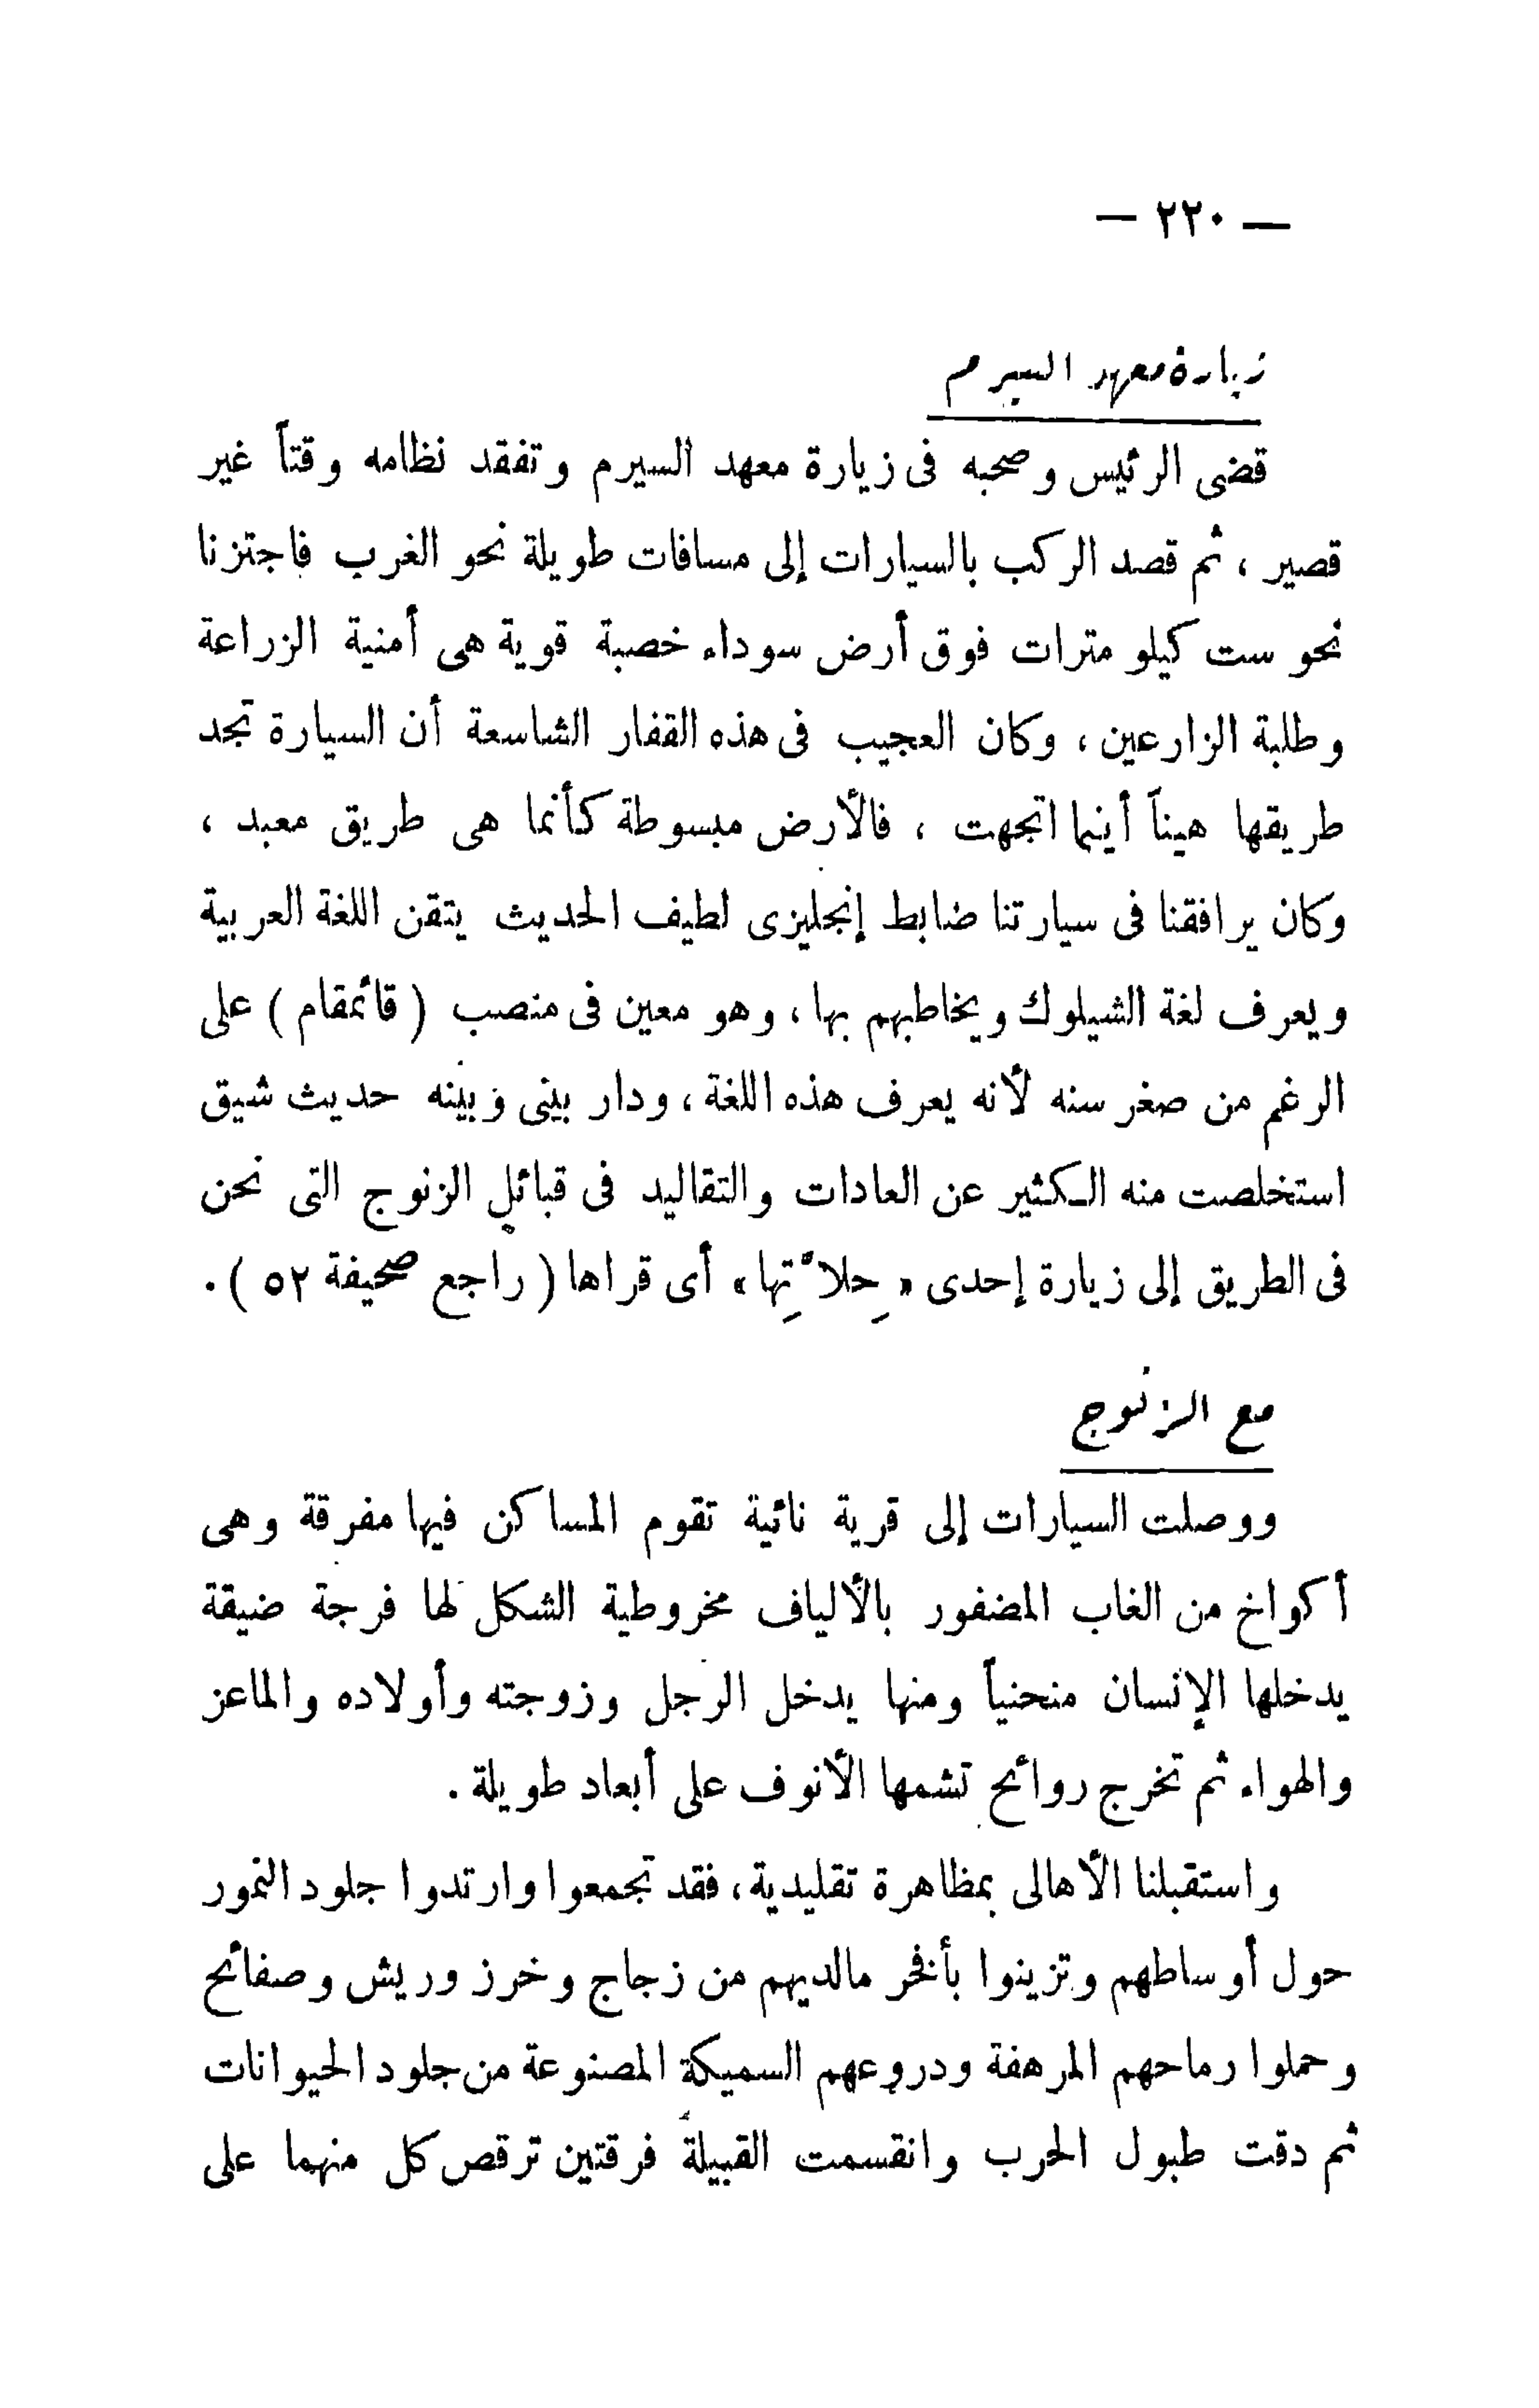 — ٢٢٠ —
زيارة معهد السيرم
قضى الرئيس وصحبه فى زيارة معهد السيرم وتفقد نظامه وقتاً غير
قصير ، ثم قصد الركب بالسيارات إلى مسافات طويلة نحو الغرب فاجتزنا
نحو ست كيلو مترات فوق أرض سوداء خصبة قوية هى أمنية الزراعة
وطلبة الزارعين ، وكان العجيب فى هذه القفار الشاسعة أن السيارة تجد
طريقها هيناً أينما اتجهت ، فالأرض مبسوطة كأنما هى طريق معبد ،
وكان يرافقنا فى سيارتنا ضابط إنجليزى لطيف الحديث يتقن اللغة العربية
ويعرف لغة الشيلوك ويخاطبهم بها ، وهو معين فى منصب ( قائمقام ) على
الرغم من صغر سنه لأنه يعرف هذه اللغة ، ودار بينى وبينه حديث شيق
استخلصت منه الكثير عن العادات والتقاليد فى قبائل الزنوج التى نحن
فى الطريق إلى زيارة إحدى « حِلاَّتِها » أى قراها ( راجع صحيفة ٥٢ ) .
مع الزنوج
ووصلت السيارات إلى قرية نائية تقوم المساكن فيها مفرقة وهى
أكواخ من الغاب المضفور بالألياف مخروطية الشكل لها فرجة ضيقة
يدخلها الإنسان منحنياً ومنها يدخل الرجل وزوجته وأولاده والماعز
والهواء ثم تخرج روائح تشمها الأنوف على أبعاد طويلة .
واستقبلنا الأهالى بمظاهرة تقليدية ، فقد تجمعوا وارتدوا جلود النمور
حول أوساطهم وتزينوا بأفخر مالديهم من زجاج وخرز وريش وصفائح
وحملوا رماحهم المرهفة ودروعهم السميكة المصنوعة من جلود الحيوانات
ثم دقت طبول الحرب وانقسمت القبيلة فرقتين ترقص كل منهما على